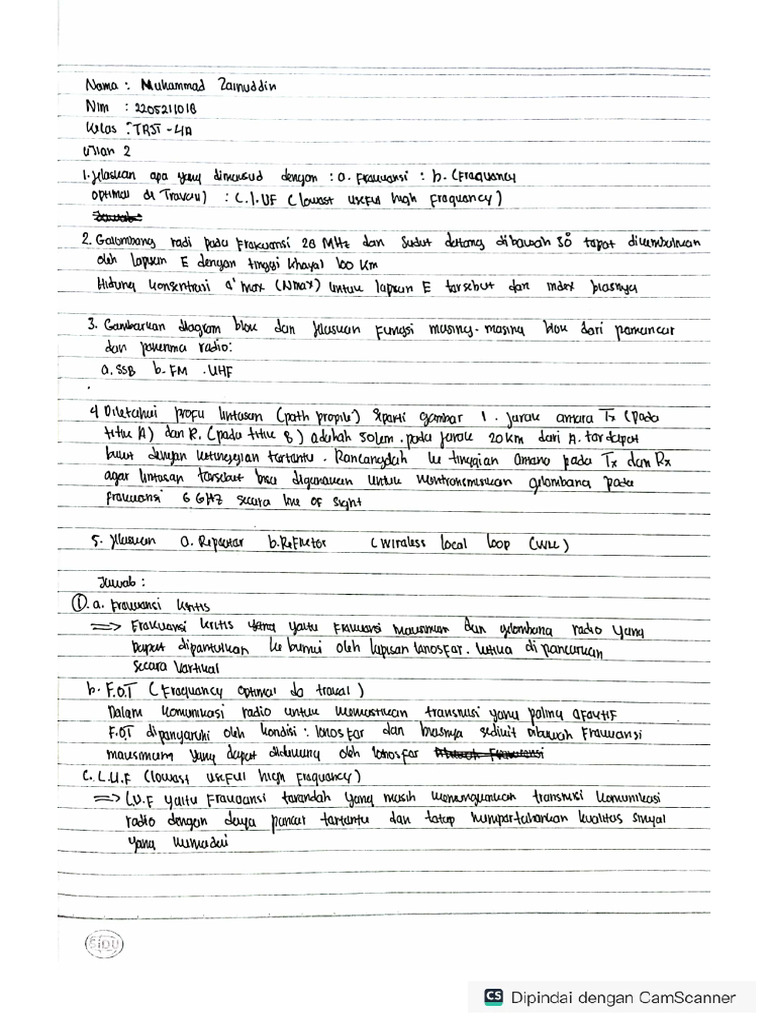 Nama : Muhammad Zainuddin
Nim : 2205211018
Kelas : TRJT - 4A
Ujian 2
1. Jelaskan apa yang dimaksud dengan : a. Frekuensi : b. (Frequency
optimal de Travail) : C. L.UF (lowest useful high frequency)
2. Gelombang radi pada frekuensi 20 MHz dan sudut datang dibawah 30° tapat dikembalikan
oleh lapisan E dengan tinggi khayal 100 Km
Hidung konsentrasi e' max (Nmax) Untuk lapisan E tersebut dan index biasnya
3. Gambarkan diagram blok dan Jelaskan Fungsi masing-masing blok dari pemancar
dan penerima radio:
a. SSB b. FM . UHF
4 Diketahui profil lintasan (path propile) seperti gambar 1 . Jarak antara Tx (pada
titik A) dan R. (pada titik B) adalah 50km . pada jarak 20 km dari A. terdapat
bukit dengan ketinggian tertentu . Rancanglah ke tinggian antena pada Tx dan Rx
agar lintasan tersebut bisa digunakan untuk mentransmisikan gelombang pada
frekuensi 6 GHz secara line of sight
5. Jelaskan a. Repeater b. Reflector (Wireless local loop (WLL)
Jawab :
①. a. Frekuensi kritis
⇒ Frekuensi kritis yang yaitu frekuensi maksimum dan gelombang radio yang
dapat dipantulkan ke bumui oleh lapisan Ionosfer. ketika di pancarkan
secara vartikal
b. F.O.T (Frequency optimal do traval)
Dalam komunikasi radio untuk memastikan transmisi yang paling efektif
F.OT dipengaruhi oleh kondisi : Ionosfer dan biasnya sedikit dibawah frekuensi
maksimum yang dapat didukung oleh Ionosfer
C. L.U.F (lowest useful high frequency)
⇒ L.U.F yaitu Frekuensi terendah yang masih memungkinkan transmisi komunikasi
radio dengan daya pancar tertentu dan tetap mempertahankan kualitas sinyal
yang memadai
SIDU
CS Dipindai dengan CamScanner